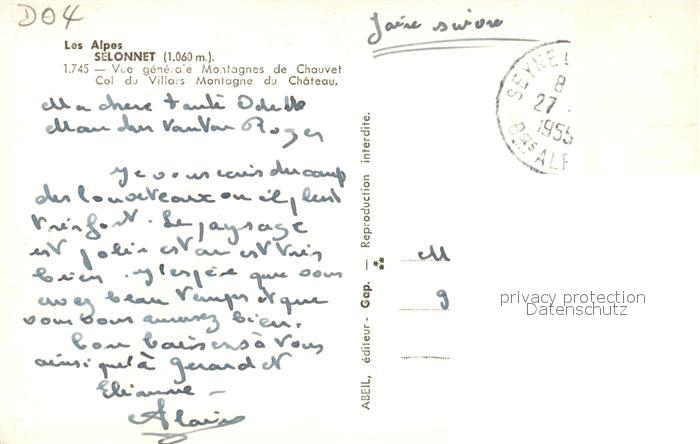 D04
faire suivre
Les Alpes
SELONNET (1.060 m.).
1.745 — Vue générale Montagnes de Chauvet
Col du Villars Montagne du Château.
SEYNE
8
27
1955
Bses ALP
Ma chère tante Odette
Mon cher tonton Roger
Je vous écris du camp
des louveteaux ou il pleut
très fort. Le paysage
est jolie et on est très
bien. J'espère que vous
avez beau temps et que
vous vous amusez bien.
bon baisers à vous
ainsi qu'à Gerard et
Elianne -
Alain
ABEIL, éditeur - Gap. — Reproduction interdite.
M
9
privacy protection
Datenschutz